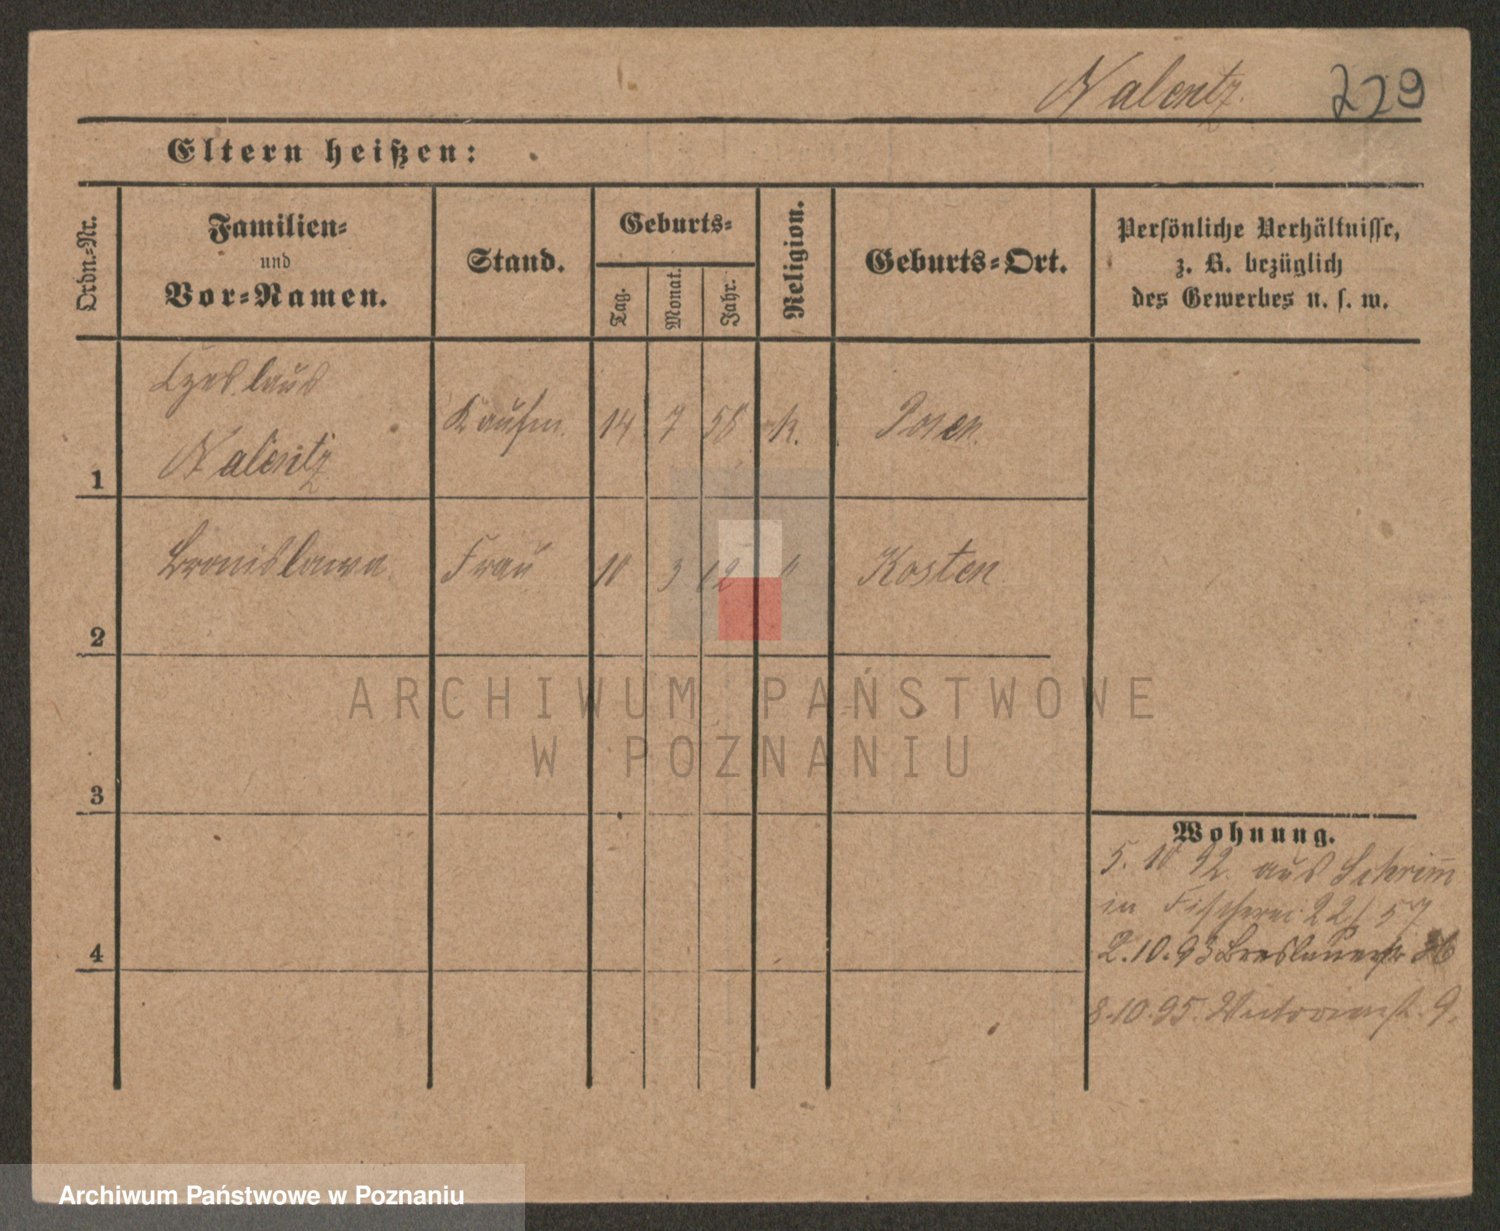 Nalentz. 229
Eltern heißen:
Ordn.-Nr.
Familien-
und
Vor-Namen.
Stand.
Geburts-
Tag.
Monat.
Jahr.
Religion.
Geburts-Ort.
Persönliche Verhältnisse,
z. B. bezüglich
des Gewerbes u. s. w.
Czeslaus
Nalentz
1 Kaufm. 14 7 58 k. Posen.
Bronislawa Frau 10 3 62 " Kosten
2
3
4
Wohnung.
5. 10 92. aus Schrimm
in Fischerei 22/57
2.10.93 Breslauerstr 36
8.10.95. Victoriast. 9.
ARCHIWUM PAŃSTWOWE
W POZNANIU
Archiwum Państwowe w Poznaniu